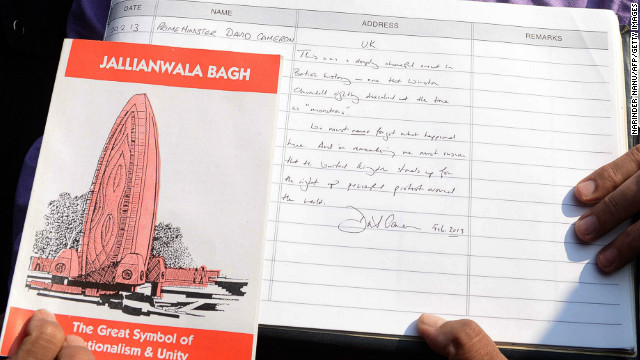 DATE NAME ADDRESS REMARKS
20.2.13 PRIME MINISTER DAVID CAMERON UK
This was a deeply shameful event in
British history – one that Winston
Churchill rightly described at the time
as "monstrous"
We must never forget what happened
here. And in remembering we must ensure
that the United Kingdom stands up for
the right of peaceful protest around
the world.
David Cameron Feb. 2013
JALLIANWALA BAGH
The Great Symbol of
tionalism & Unity
NARINDER NANU/AFP/GETTY IMAGES